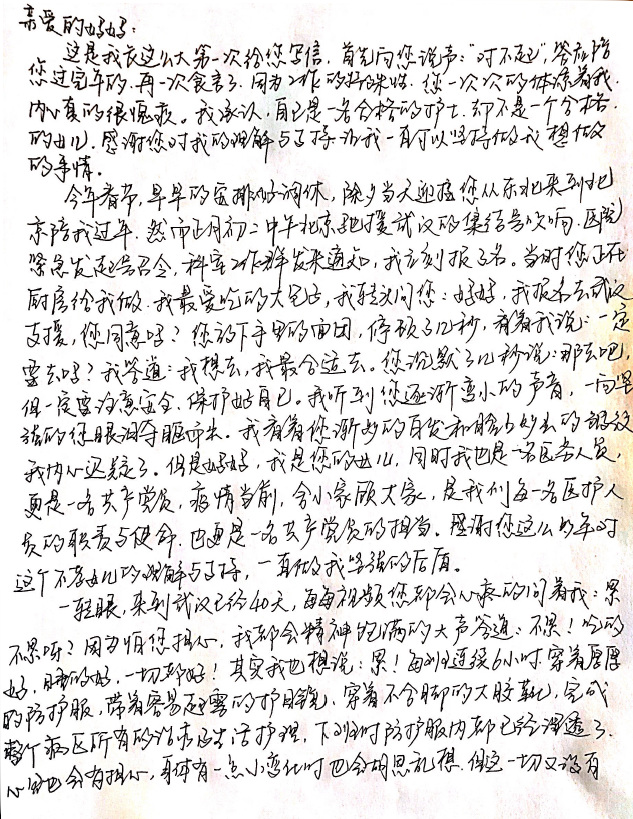 亲爱的妈妈:
这是我长这么大第一次给您写信,首先向您说声:“对不起”,答应陪
您过完年的,再一次食言了,因为工作的特殊性,您一次次的体谅着我,
内心真的很愧疚。我承认,自己是一名合格的护士,却不是一个合格
的女儿,感谢您对我的理解与支持让我一直可以坚持做我想做
的事情。
今年春节,早早的安排好调休,除夕当天迎接您从东北来到北
京陪我过年,然而正月初二中午北京驰援武汉的集结号吹响,医院
紧急发起号召令,科室工作群发来通知,我立刻报了名。当时您正在
厨房给我做我最爱吃的大包子,我转头问您:妈妈,我报名去武汉
支援,您同意吗?您放下手里的面团,停顿了几秒,看着我说:一定
要去吗?我答道:我想去,我最合适去。您沉默了几秒说:那去吧,
但一定要注意安全,保护好自己。我听到您逐渐变小的声音,一向坚
强的您眼泪夺眶而出。我看着您渐多的白发和脸上抄去的皱纹
我内心迟疑了。但是妈妈,我是您的女儿,同时我也是一名医务人员,
更是一名共产党员,疫情当前,舍小家顾大家,是我们每一名医护人
员的职责与使命,也更是一名共产党员的担当。感谢您这么多年对
这个不孝女儿的理解与支持,一直做我坚强的后盾。
一转眼,来到武汉已经40天,每每视频您都会心疼的问着我:累
不累呀?因为怕您担心,我都会精神饱满的大声答道:不累!吃的
好,睡的好,一切都好!其实我也想说:累!每班连续6小时穿着厚厚
的防护服,带着容易起雾的护目镜,穿着不合脚的大胶靴,完成
整个病区所有的治疗及生活护理,下班时防护服内都已经湿透了。
心里也会有担心,身体有一点小变化时也会胡思乱想,但这一切又没有